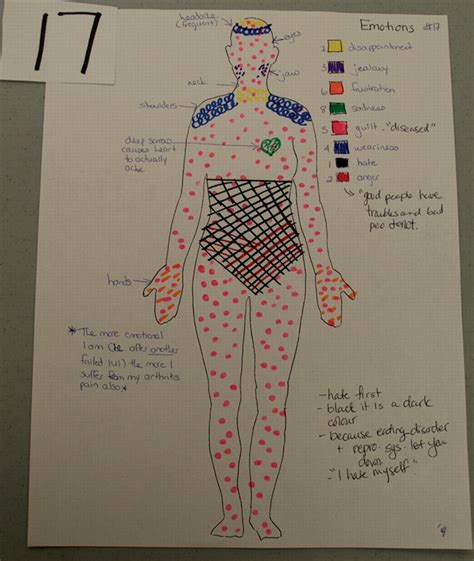 17
headache
(frequent)
eyes
jaw
neck
shoulders
deep sorrow
causes heart
to actually
ache
hands
* The more emotional
I am (ie after another
failed IUI) the more I
suffer from my arthritis
pain also *
Emotions #17
disappointment
3 jealousy
6 frustration
8 sadness
5 guilt - "diseased"
4 weariness
1 hate
2 anger
"good people have
troubles and bad
peo. do not.
- hate first
- black it is a dark
colour
- because eating disorder
+ repro. sys. let you
down.
- "I hate myself"